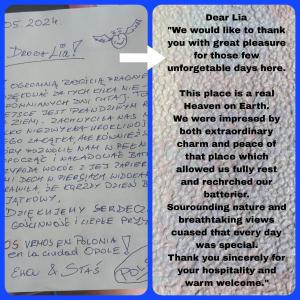 05 2024.
DROGA LIA!
OGROMNĄ RADOŚCIĄ PRAGNIE
ZIĘKOWAĆ ZA TYCH KILKA NIE-
OMNIANYCH DNI TUTAJ. TO
EJSCE JEST PRAWDZIWYM R
ZIEMI. ZACHWYCIŁA NAS
NIEZWYKŁA
TEGO ZAKĄTKA ALE RÓWNIEŻ
NAM W PEŁNI
OCZĄĆ I NAŁADOWAĆ BAT
PRZYRODA WOKÓŁ
DECH W PIERSIACH WIDOKI
RAWIŁA, ŻE KAŻDY DZIEŃ B
JĄTKOWY.
DZIĘKUJEMY SERDEC
GOŚCINNOŚĆ I CIEPŁE PRZY
OS VEMOS EN POLONIA!
en la ciudad OPOLE!
EWA & STAŚ
POL
Dear Lia
"We would like to thank
you with great pleasure
for those few
unforgetable days here.
This place is a real
Heaven on Earth.
We were impresed by
both extraordinary
charm and peace of
that place which
allowed us fully rest
and rechrched our
batterier.
Sourounding nature and
breathtaking views
cuased that every day
was special.
Thank you sincerely for
your hospitality and
warm welcome."